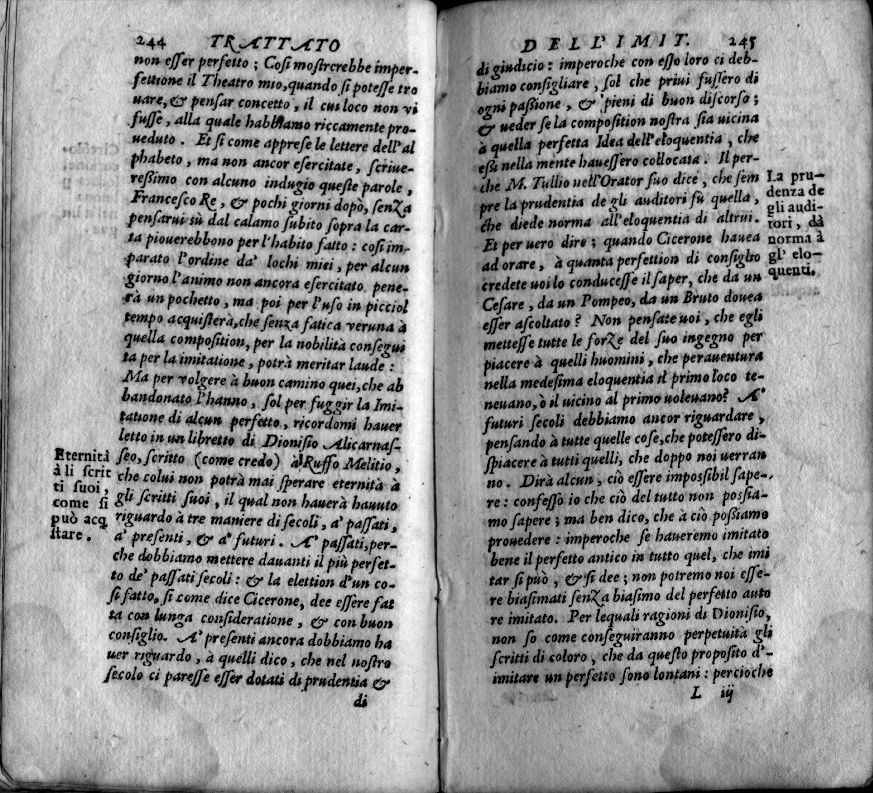 244 TRATTATO
non esser perfetto ; Cosi mostrerebbe imper-
fettione il Theatro mio, quando si potesse tro
uare, & pensar concetto, il cui loco non vi
fusse, alla quale habbiamo riccamente pro-
ueduto . Et si come apprese le lettere dell'al
phabeto , ma non ancor esercitate , scriue-
ressimo con alcuno indugio queste parole ,
Francesco Re , & pochi giorni dopò, senza
pensarui sù dal calamo subito sopra la car-
ta piouerebbono per l'habito fatto : cosi im-
parato l'ordine da' lochi miei , per alcun
giorno l'animo non ancora esercitato pene-
rà un pochetto , ma poi per l'uso in picciol
tempo acquisterà, che senza fatica veruna à
quella composition, per la nobilità consegui
ta per la imitatione , potrà meritar laude :
Ma per volgere à buon camino quei, che ab
bandonato l'hanno , sol per fuggir la Imi-
tatione di alcun perfetto , ricordomi hauer
letto in un libretto di Dionisio Alicarnas-
seo, scritto (come credo) à Ruffo Melitio ,
che colui non potrà mai sperare eternità à
gli scritti suoi , il qual non hauerà hauuto
riguardo à tre maniere di secoli , a' passati ,
a' presenti , & a' futuri . A' passati, per-
che dobbiamo mettere dauanti il più perfet-
to de' passati secoli : & la elettion d'un co-
si fatto, si come dice Cicerone, dee essere fat
ta con lunga consideratione , & con buon
consiglio. A' presenti ancora dobbiamo ha
uer riguardo , à quelli dico , che nel nostro
secolo ci paresse esser dotati di prudentia &
di
Eternità
à li scrit
ti suoi,
come si
può acq
stare .
DELL' IMIT. 245
di giudicio : imperoche con esso loro ci deb-
biamo consigliare , sol che priui fussero di
ogni passione , & pieni di buon discorso ;
& ueder se la composition nostra sia uicina
à quella perfetta Idea dell'eloquentia , che
essi nella mente hauessero collocata . Il per-
che M. Tullio nell'Orator suo dice, che sem
pre la prudentia de gli auditori fù quella ,
che diede norma all'eloquentia di altrui.
Et per uero dire ; quando Cicerone hauea
ad orare , à quanta perfettion di consiglio
credete uoi lo conducesse il saper, che da un
Cesare , da un Pompeo, da un Bruto douea
esser ascoltato ? Non pensate uoi , che egli
mettesse tutte le forze del suo ingegno per
piacere à quelli huomini , che perauentura
nella medesima eloquentia il primo loco te-
neuano, ò il uicino al primo uoleuano? A'
futuri secoli debbiamo ancor riguardare ,
pensando à tutte quelle cose, che potessero di-
spiacere à tutti quelli, che doppo noi uerran
no . Dirà alcun , ciò essere impossibil sape-
re : confesso io che ciò del tutto non possia-
mo sapere ; ma ben dico, che à ciò possiamo
prouedere : imperoche se haueremo imitato
bene il perfetto antico in tutto quel, che imi
tar si può , & si dee ; non potremo noi esse-
re biasimati senza biasimo del perfetto auto
re imitato. Per lequali ragioni di Dionisio,
non so come conseguiranno perpetuità gli
scritti di coloro , che da questo proposito d'-
imitare un perfetto sono lontani : percioche
L iij
La pru-
denza de
gli audi-
tori, dà
norma à
gl' elo-
quenti.